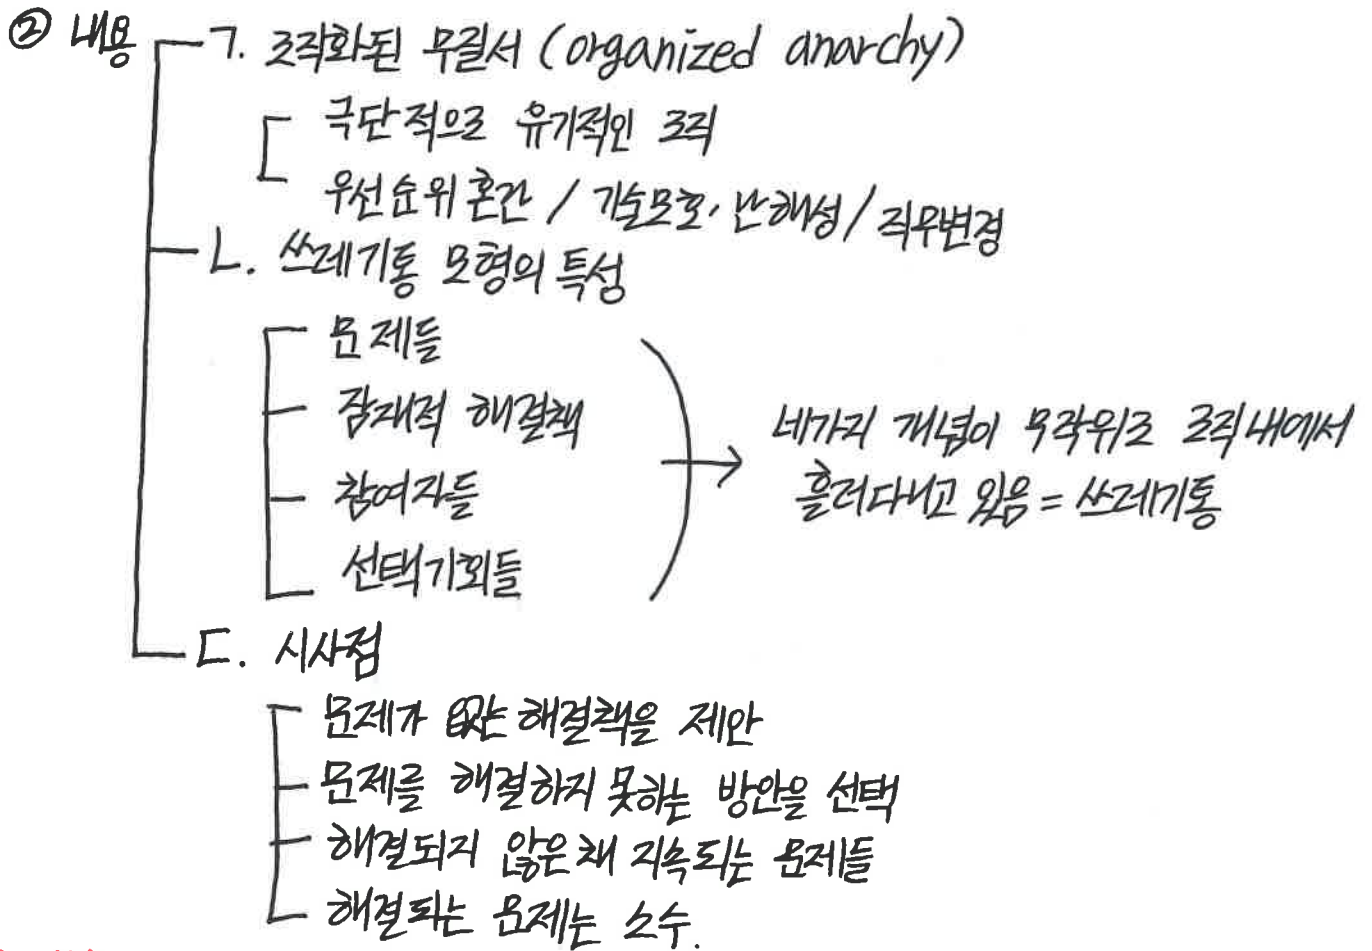 ② 내용
ㄱ. 조직화된 무질서 (organized anarchy)
극단적으로 유기적인 조직
우선순위 혼란 / 기술모호, 난해성 / 직무변경
ㄴ. 쓰레기통 모형의 특성
문제들
잠재적 해결책
참여자들
선택기회들
네가지 개념이 무작위로 조직내에서
흘러다니고 있음 = 쓰레기통
ㄷ. 시사점
문제가 없는 해결책을 제안
문제를 해결하지 못하는 방안을 선택
해결되지 않은채 지속되는 문제들
해결되는 문제는 소수.